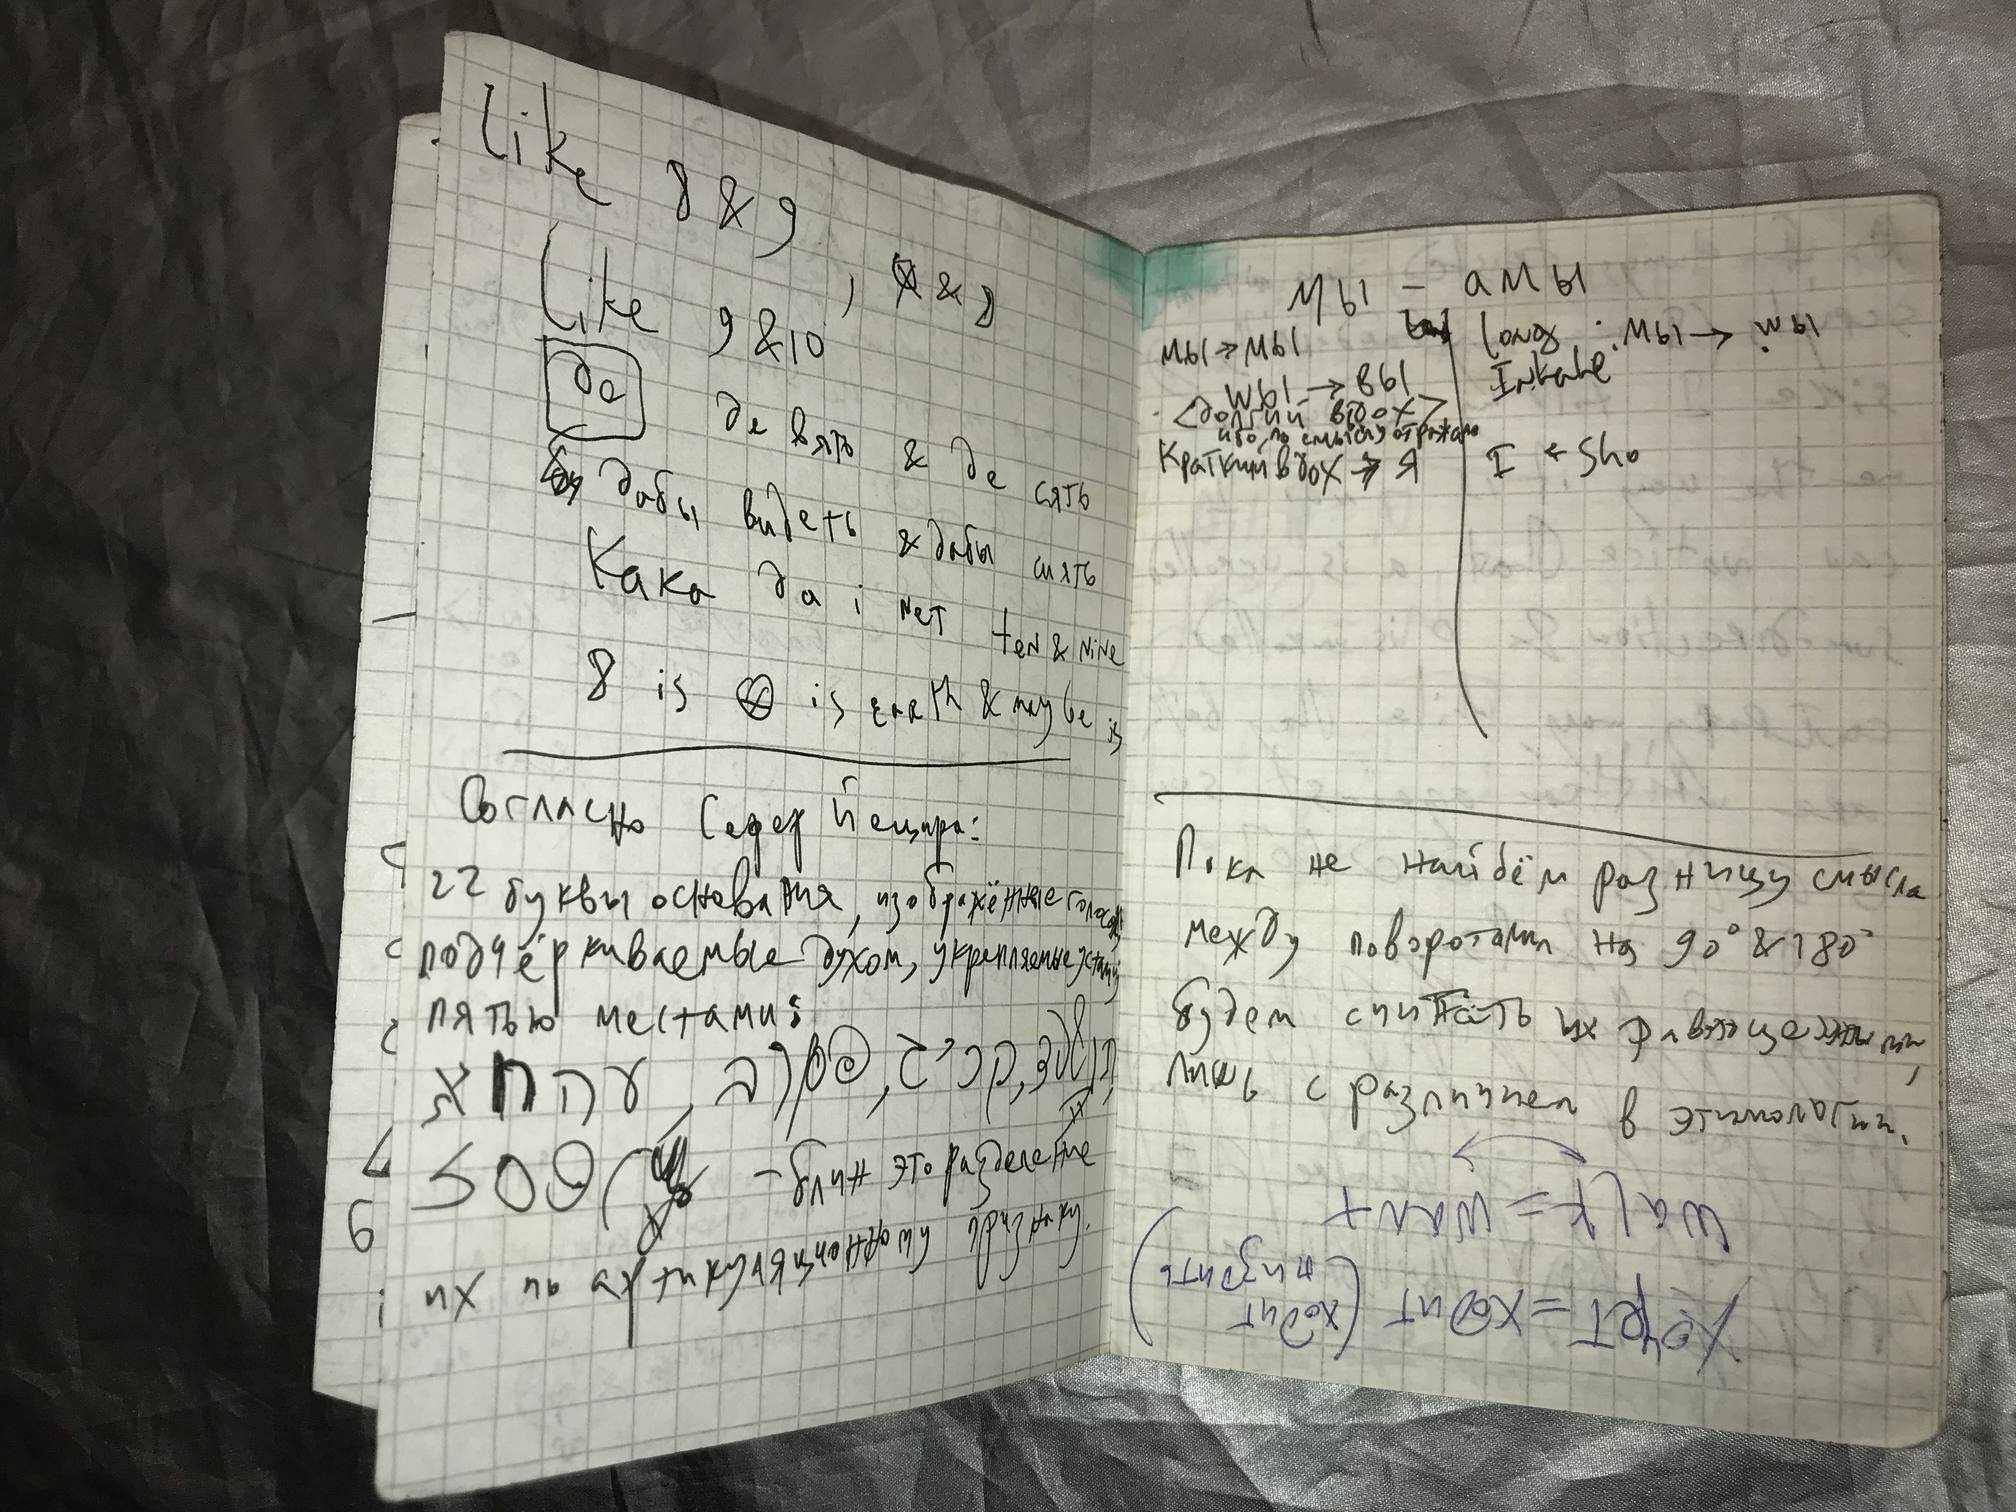 like 8 & 9
, & 8
like 9 & 10
де
де вять & де сять
дабы видеть & дабы снять
Кака да i нет ten & nine
8 is ⊗ is earth & maybe is
Согласно Седер Йецира:
22 буквы основания, изображённые голосом,
подчёркиваемые духом, укрепляемые устами
пятью местами:
א ח ה ע,
– блин это разделение
их по артикуляционному признаку.
6
мы – амы
мы → мы
wы → вы
<долгий вдох>
ибо, по смыслу отражало
Краткий вдох → я
long : мы → wы
Inhale
I ← Sho
Пока не найдём разницу смысла
между поворотами на 90° & 180°
будем считать их равноценными,
лишь с различием в этимологии.
walk = want
хочет = ходит (ходит